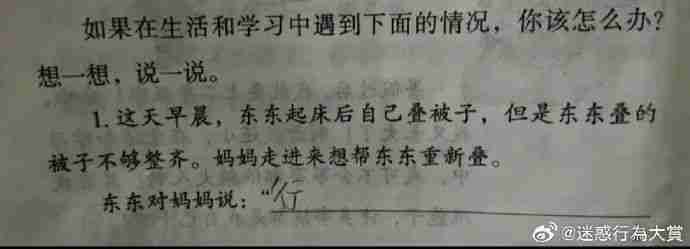 如果在生活和学习中遇到下面的情况，你该怎么办？
想一想，说一说。
1.这天早晨，东东起床后自己叠被子，但是东东叠的
被子不够整齐。妈妈走进来想帮东东重新叠。
东东对妈妈说：“行
@迷惑行為大賞